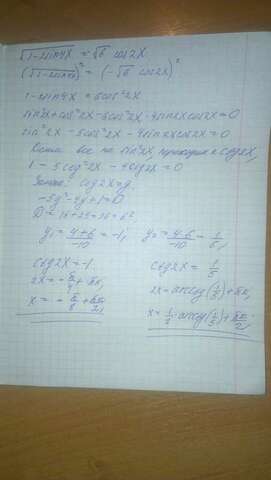 √(1-sin4x) = √6 cos2x
(√(1-sin4x))² = (-√6 cos2x)²
1-sin4x = 6cos²2x
sin²2x+cos²2x-6cos²2x-4sin2xcos2x=0
sin²2x-5cos²2x-4sin2xcos2x=0
все на sin²2x, переходим к ctg2x,
1-5ctg²2x-4ctg2x=0
Замена: ctg2x=y
-5y²-4y+1=0
D=16+20=36=6²,
y₁=(4+6)/-10=-1, y₂=(4-6)/-10=1/5,
ctg2x=-1 ctg2x=1/5
2x=-π/4+πk, 2x=arcctg(1/5)+πk,
x=-π/8+πk/2, x=1/2 arcctg(1/5)+πk/2,